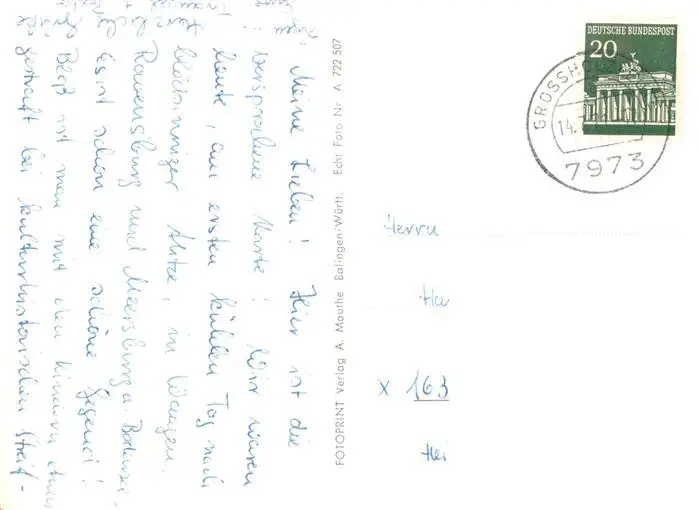 Meine Lieben! Hier ist die
versprochene Karte! Wir waren
heute, am ersten kühlen Tag nach
blödsinniger Hitze, in Wangen,
Ravensburg und Meersburg a. Bodensee.
Es ist schon eine schöne Gegend!
Bloß ist man mit den Kindern etwas
gestraft bei kulturhistorischen Streif-
FOTOPRINT Verlag A. Mauthe Balingen/Württ. Echt Foto Nr A 722 507
DEUTSCHE BUNDESPOST
20
14.
7973
Herrn
x 163